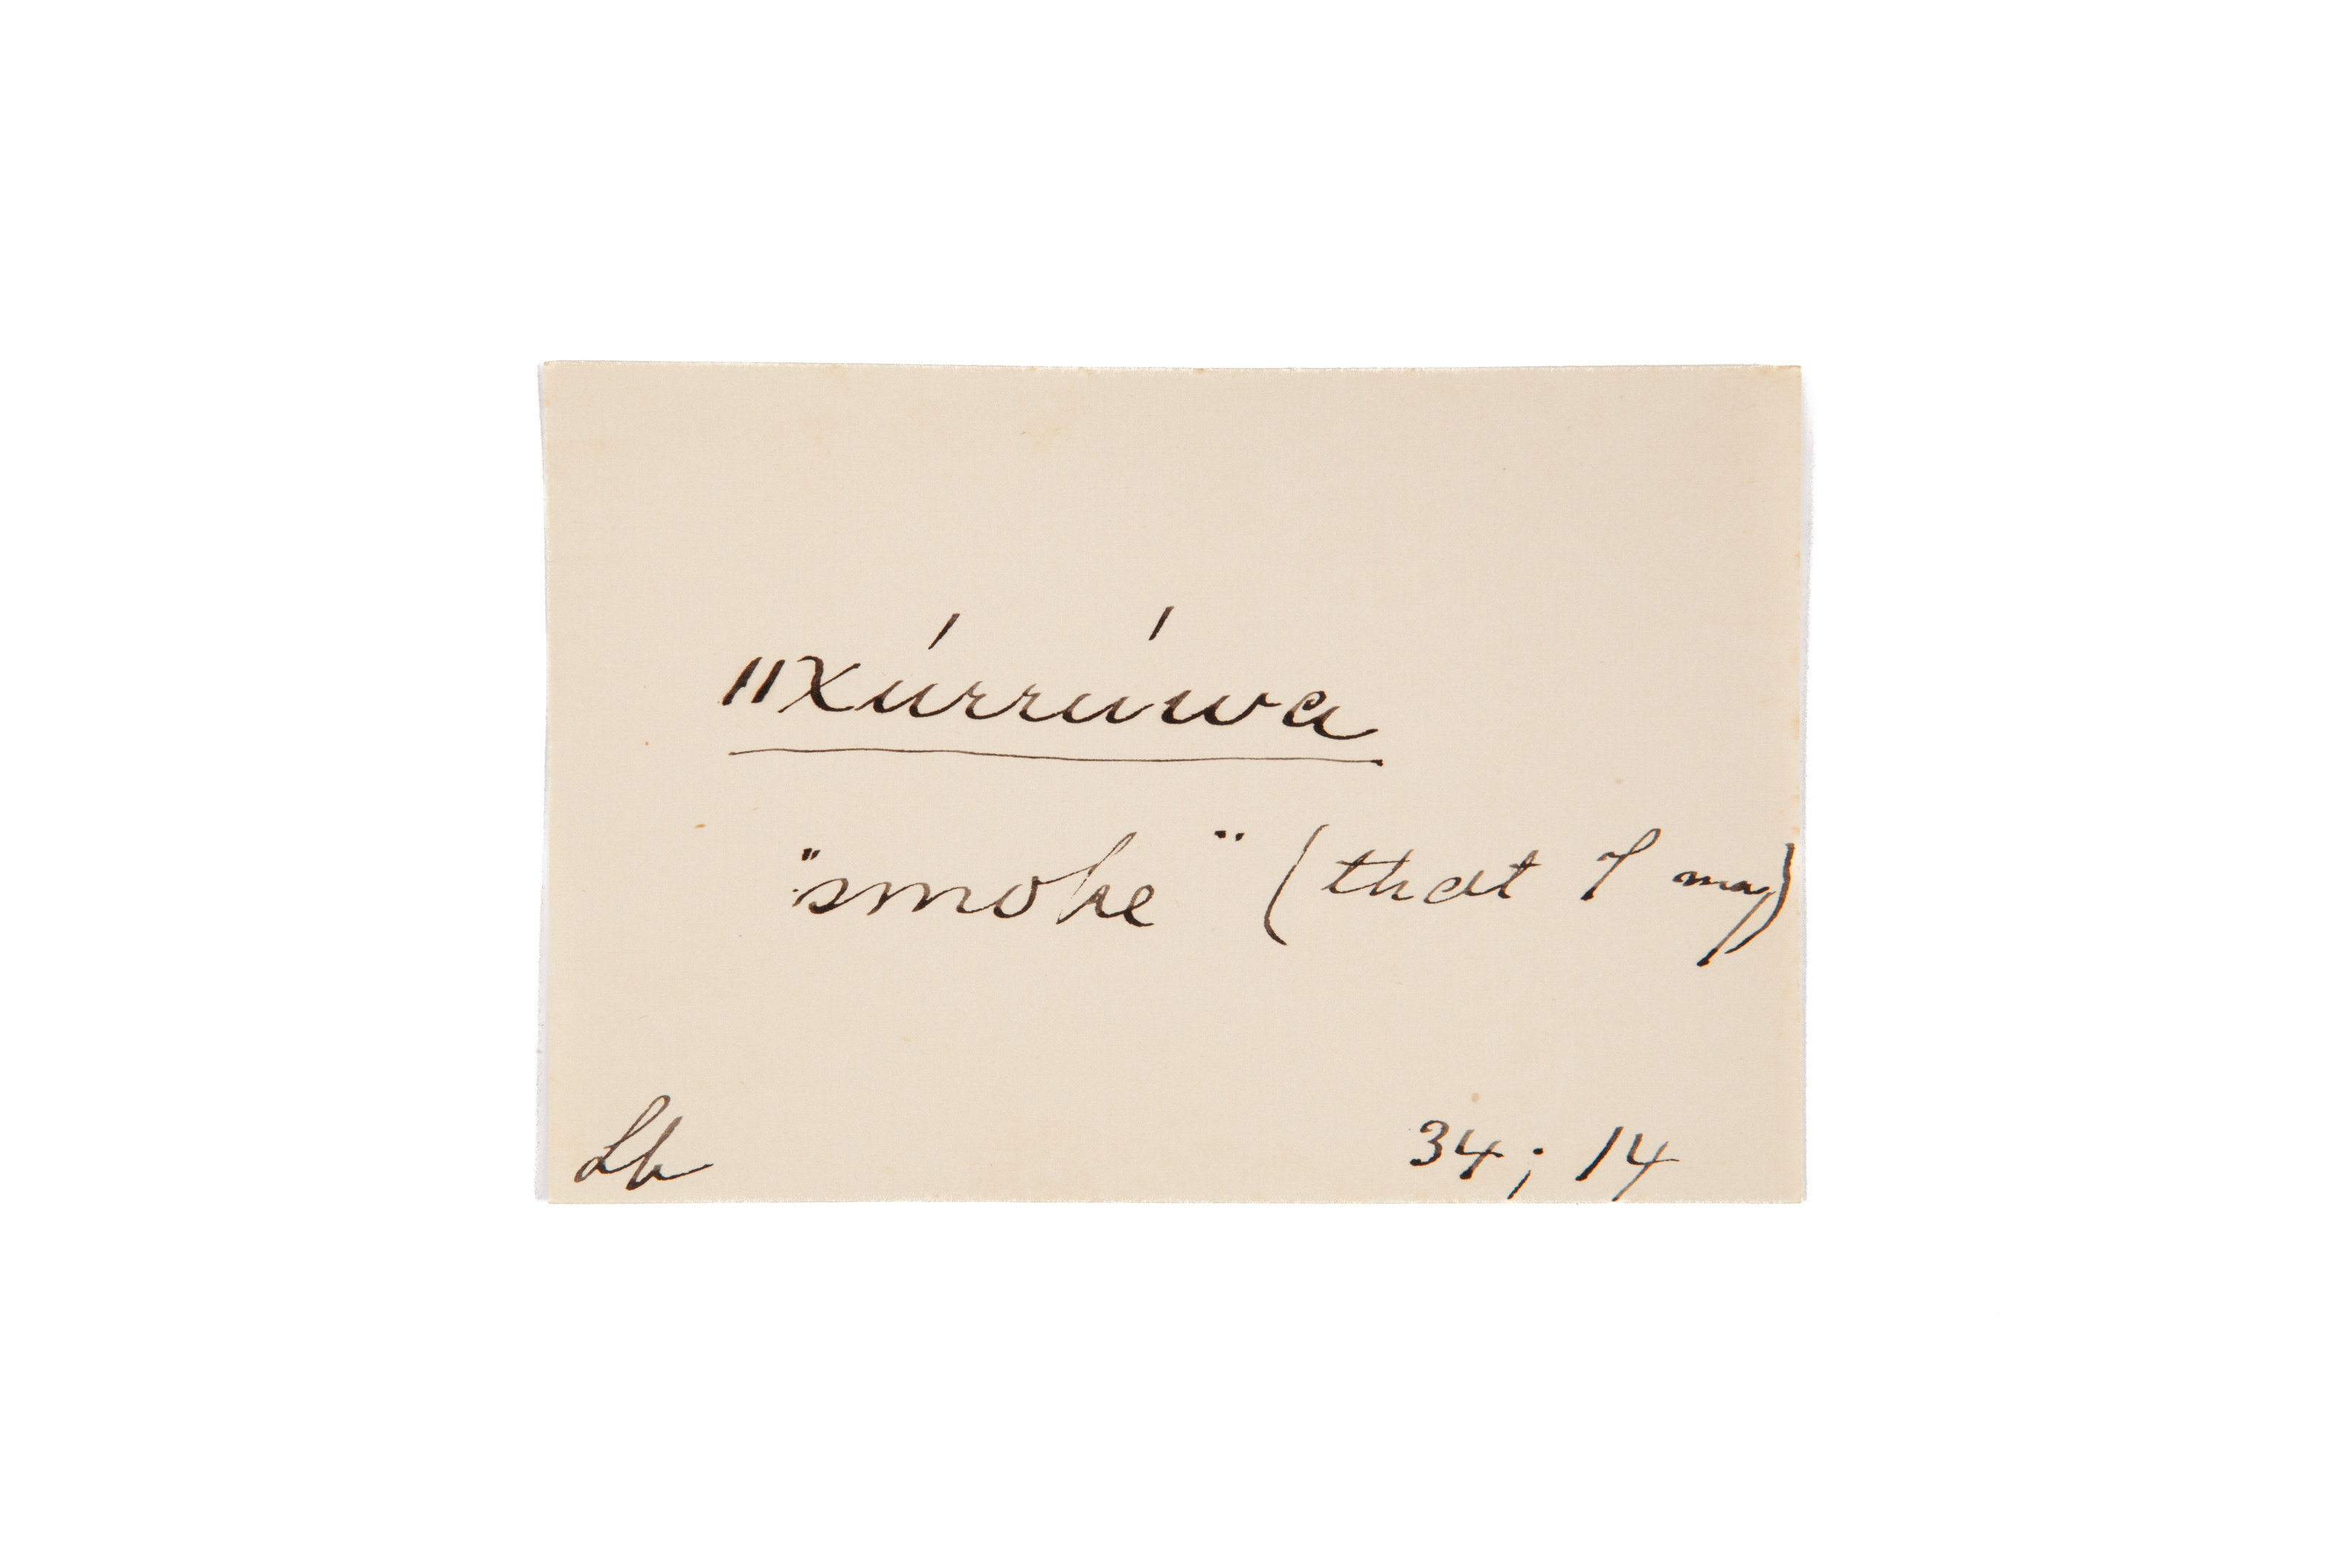 ǁχúrrúwa
"smoke" (that I may)
Lb 34; 14